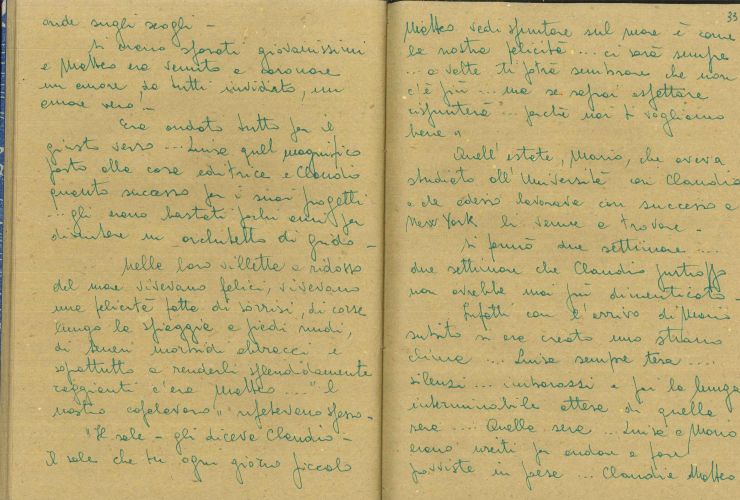 onde sugli scogli -
Si erano sposati giovanissimi
e Matteo era venuto a coronare
un amore da tutti invidiato, un
amore vero -
Era andato tutto per il
giusto verso ... Luisa quel magnifico
posto alla casa editrice e Claudio
quanto successo per i suoi progetti
... gli erano bastati pochi anni per
diventare un architetto di grido -
Nella loro villetta a ridosso
del mare vivevano felici, vivevano
una felicità fatta di sorrisi, di corse
lungo la spiaggia a piedi nudi,
di teneri morbidi abbracci e
soprattutto a renderli splendidamente
raggianti c'era Matteo .... "Il
nostro capolavoro" ripetevano spesso -
"Il sole - gli diceva Claudio -
il sole che tu ogni giorno piccolo
33
Matteo vedi spuntare sul mare è come
la nostra felicità ... ci sarà sempre
... a volte ti potrà sembrare che non
c'è più ... ma se saprai aspettare
rispunterà ... perché noi ti vogliamo
bene"
Quell'estate, Mario, che aveva
studiato all'Università con Claudio
e che adesso lavorava con successo a
New York li venne a trovare -
Si fermò due settimane ....
due settimane che Claudio purtroppo
non avrebbe mai più dimenticato -
Infatti con l'arrivo di Mario
subito si era creato uno strano
clima ... Luisa sempre tesa ....
silenzi ... imbarazzi e poi la lunga
interminabile attesa di quella
sera .... Quella sera ... Luisa e Mario
erano usciti per andare a fare
provviste in paese ... Claudio e Matteo